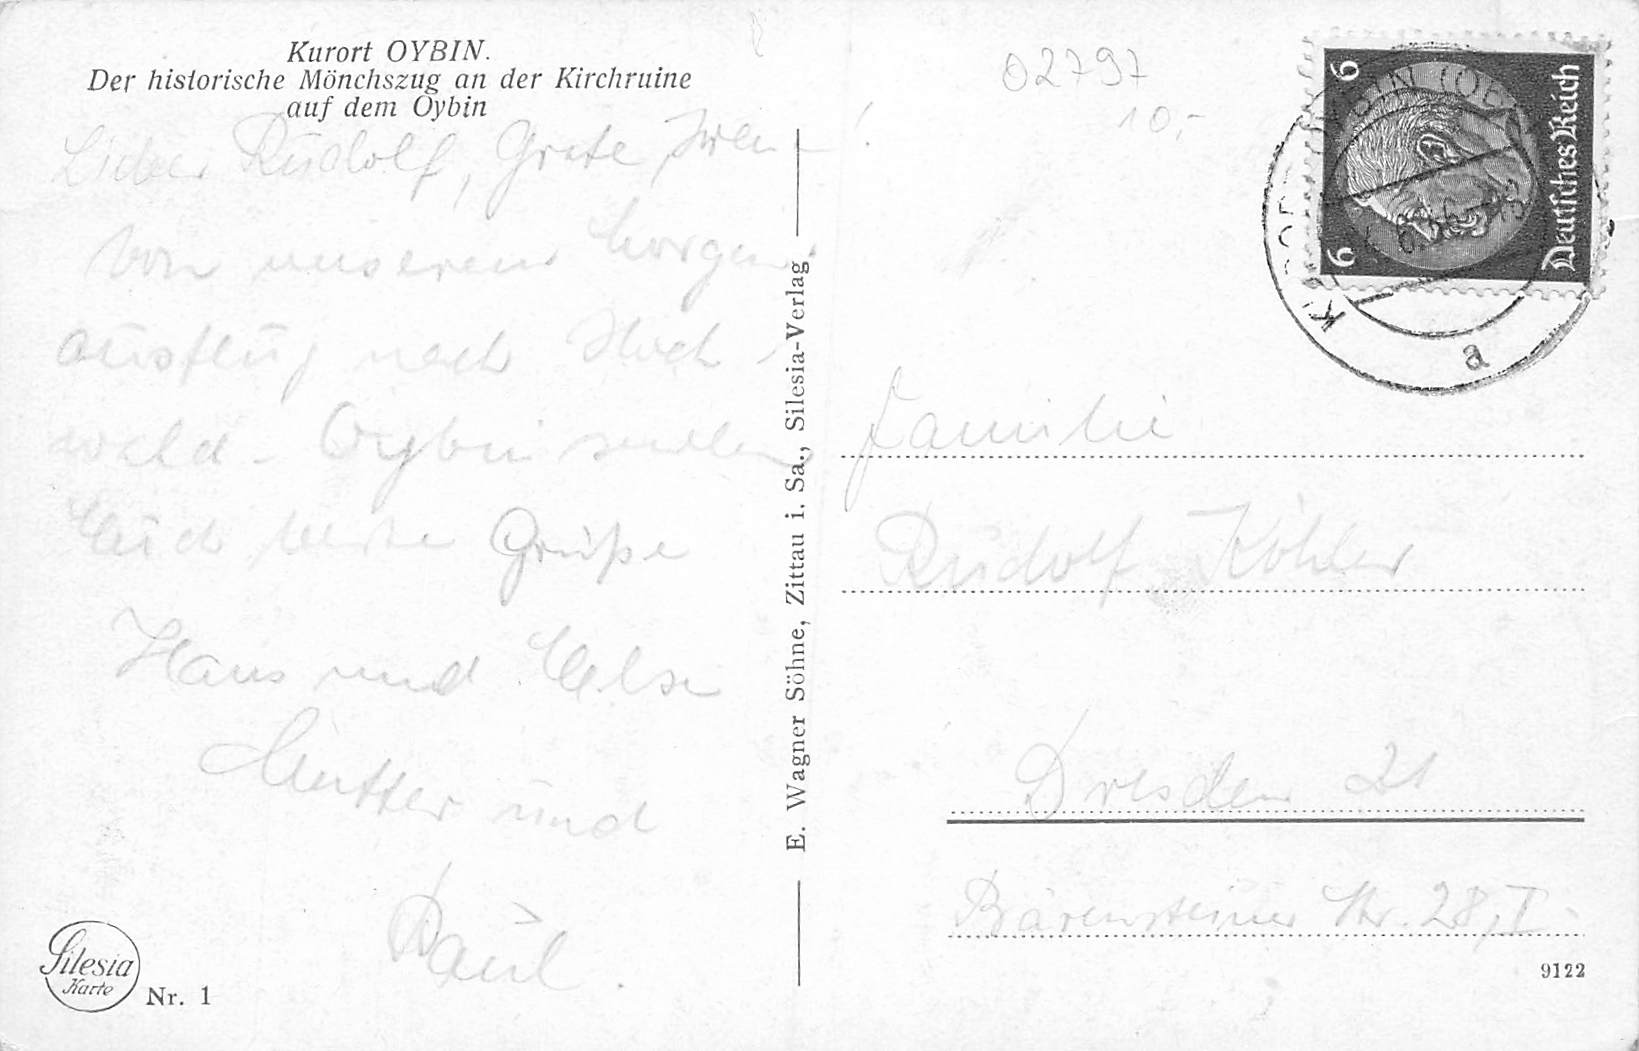 Kurort OYBIN.
Der historische Mönchszug an der Kirchruine
auf dem Oybin
Lieber Rudolf, Grete,
von unserem
ausflug nach Hoch-
wald - Oybin senden
Euch beste Grüße
Hans und Else
Mutter und
Paul.
Silesia
Karte
Nr. 1
E. Wagner Söhne, Zittau i. Sa., Silesia-Verlag
02797
10,-
6
6
Deutsches Reich
KURORT OYBIN
a
Familie
Rudolf Köhler
Dresden 21
Bärensteiner Str. 28, I.
9122